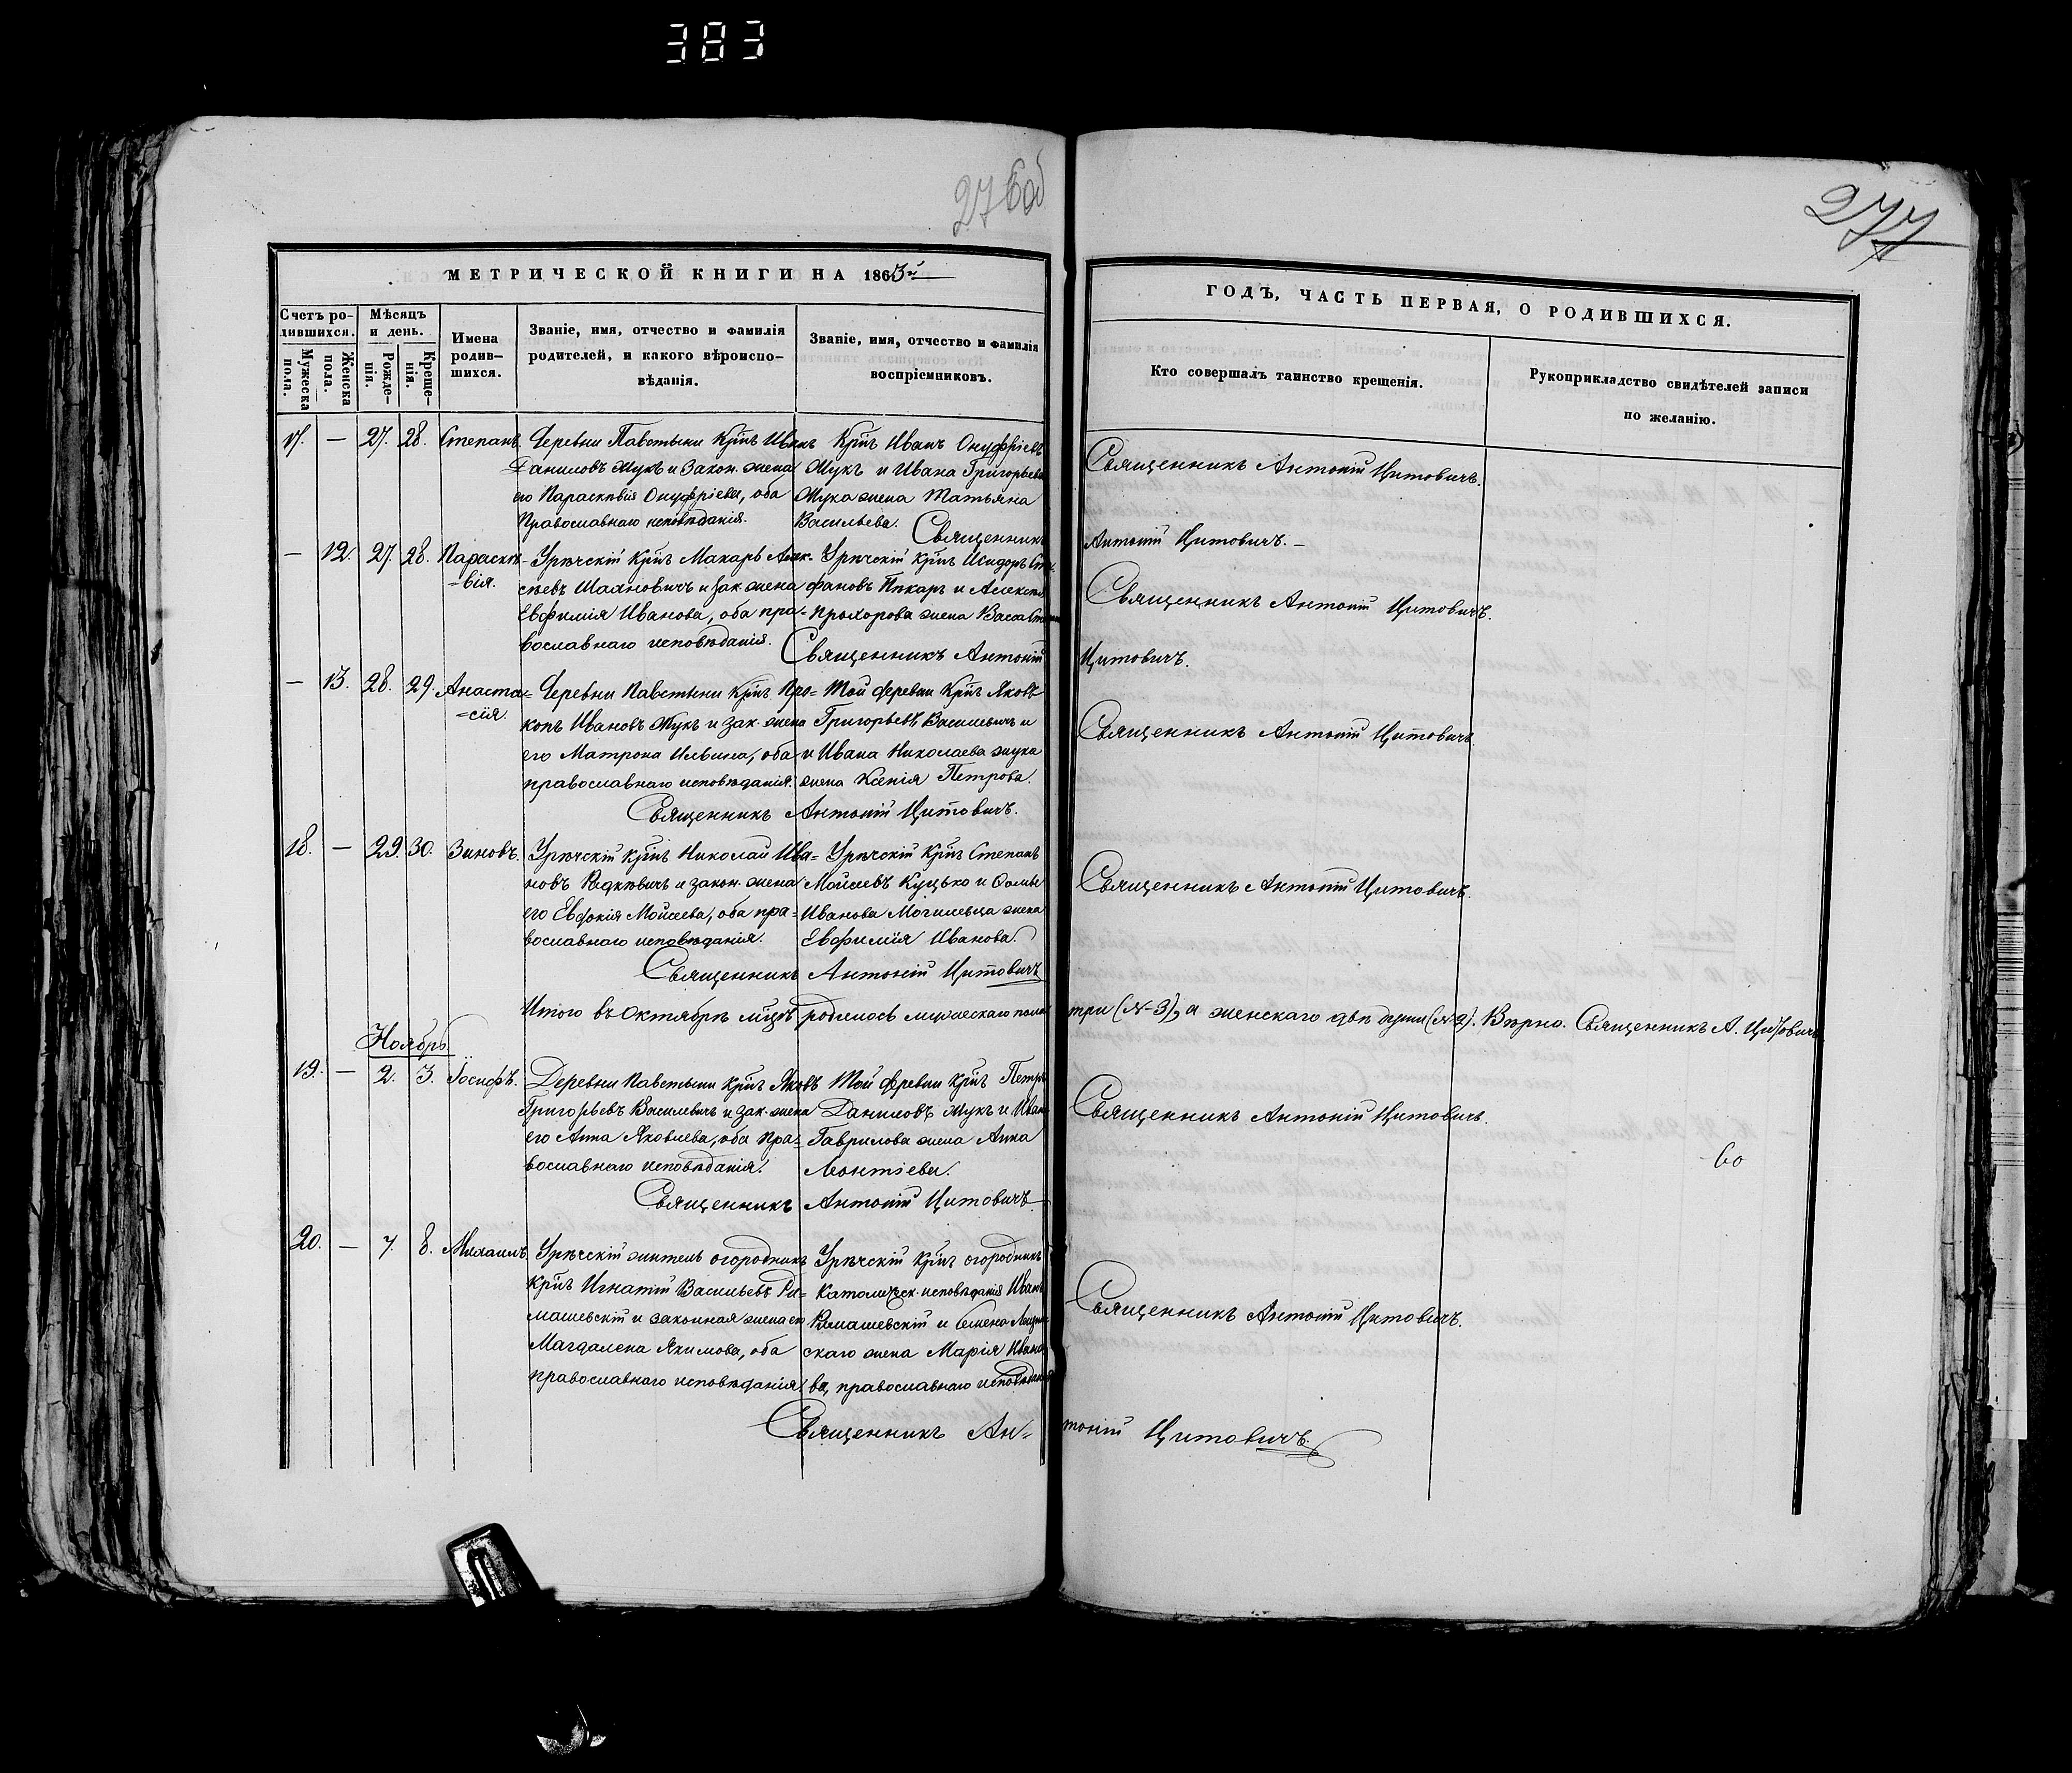 383
276об
277
МЕТРИЧЕСКОЙ КНИГИ НА 1865й
ГОДЪ, ЧАСТЬ ПЕРВАЯ, О РОДИВШИХСЯ.
Счетъ родившихся.
Мужеска пола.
Женска пола.
Мѣсяцъ и день.
Рожденія.
Крещенія.
Имена родившихся.
Званіе, имя, отчество и фамилія
родителей, и какого вѣроиспо-
вѣданія.
Званіе, имя, отчество и фамилія
воспріемниковъ.
Кто совершалъ таинство крещенія.
Рукоприкладство свидѣтелей записи
по желанію.
17. — 27. 28. Степанъ.
Деревни Павстыни Крнъ Иванъ
Даниловъ Жукъ и Закон. жена
его Параскевія Онуфріева, оба
Православнаго исповѣданія.
Крнъ Иванъ Онуфріевъ
Жукъ и Ивана Григорьева
Жука жена Татьяна
Васильева.
Священникъ Антоній Цитовичъ.
Священникъ Антоній Цитовичъ. —
— 12. 27. 28. Параске-
=вія.
Урѣчскій Крнъ Макаръ Алек-
сѣевъ Шахновичъ и зак. жена
Евфимія Иванова, оба пра-
вославнаго исповѣданія.
Урѣчскій Крнъ Исидоръ Сте-
фановъ Пекаръ и
Прохорова жена Васса
Священникъ Антоній Цитовичъ.
Священникъ Антоній Цитовичъ.
— 13. 28. 29. Анаста-
=сія.
Деревни Павстыни Крнъ Про=
копъ Ивановъ Жукъ и зак. жена
его Матрона Ильина, оба
православнаго исповѣданія.
Той деревни Крнъ Яковъ
Григорьевъ Василевичъ и
и Ивана Николаева жука
жена Ксенія Петрова.
Священникъ Антоній Цитовичъ.
Священникъ Антоній Цитовичъ.
18. — 29. 30. Зиновъ.
Урѣчскій Крнъ Николай Ива=
новъ Радкевичъ и закон. жена
его Евдокія Моисеева, оба пра=
вославнаго исповѣданія.
Урѣчскій Крнъ Степанъ
Моисеевъ Куцько и Фомы
Иванова Могилевца жена
Евфимія Иванова.
Священникъ Антоній Цитовичъ.
Священникъ Антоній Цитовичъ
Итого въ Октябрѣ мцѣ родилось мужескаго пола три (№3), а женскаго двѣ души (№2). Вѣрно. Священникъ А. Цитовичъ
Ноябрь.
19. — 2. 3. Іосифъ.
Деревни Павстыни Крнъ Яковъ
Григорьевъ Василевичъ и зак. жена
его Анна Яковлева, оба Пра-
вославнаго исповѣданія.
Той деревни Крнъ Петръ
Даниловъ Жукъ и Ивана
Гаврилова жена Анна
Леонтіева.
Священникъ Антоній Цитовичъ.
60
Священникъ Антоній Цитовичъ
20. — 7. 8. Михаилъ.
Урѣчскій житель огородникъ
Крнъ Игнатій Васильевъ Ри=
машевскій и законная жена его
Магдалена Якимова, оба
православнаго исповѣданія.
Урѣчскій Крнъ огородникъ
Католическ. исповѣданія Иванъ
Римашевскій и Семена
скаго жена Марія Ивано-
ва, православнаго исповѣданія
Священникъ Антоній Цитовичъ.
Священникъ Ан=тоній Цитовичъ.